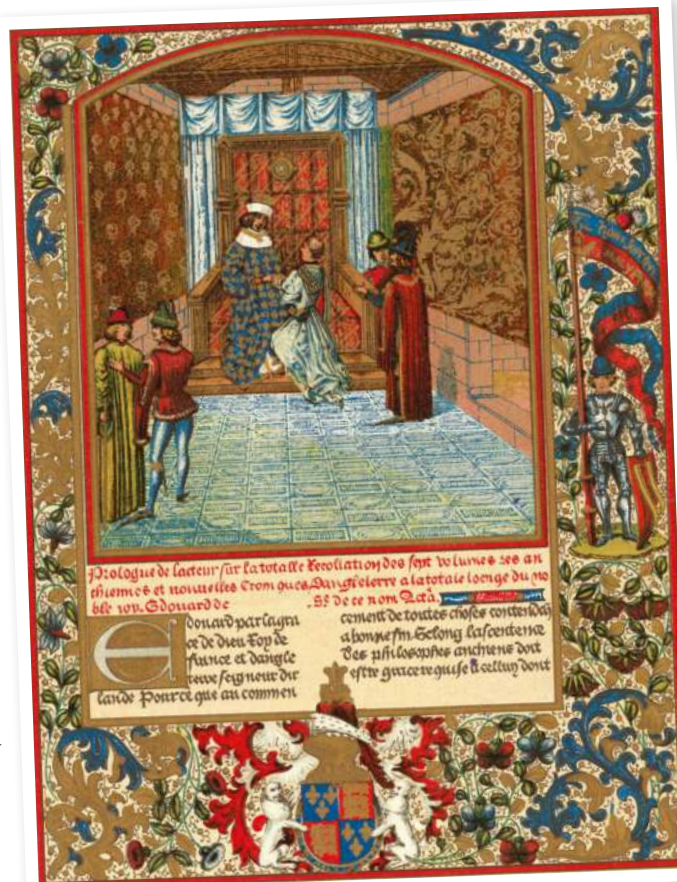 Prologue de lacteur sur la totalle Recoliation des sept volumes des an
thiennes et nouvelles Croniques Dangleterre a la totale loenge du no
ble roy Edouard de
de ce nom
Edouard par la gra
ce de dieu Roy de
france et dangle
terre seigneur dir
lande Pour ce que au commen
cement de toutes choses contendās
a bonne fin. Selong la sentence
des philosophes anchiens doit
estre grace requise a celluy dont